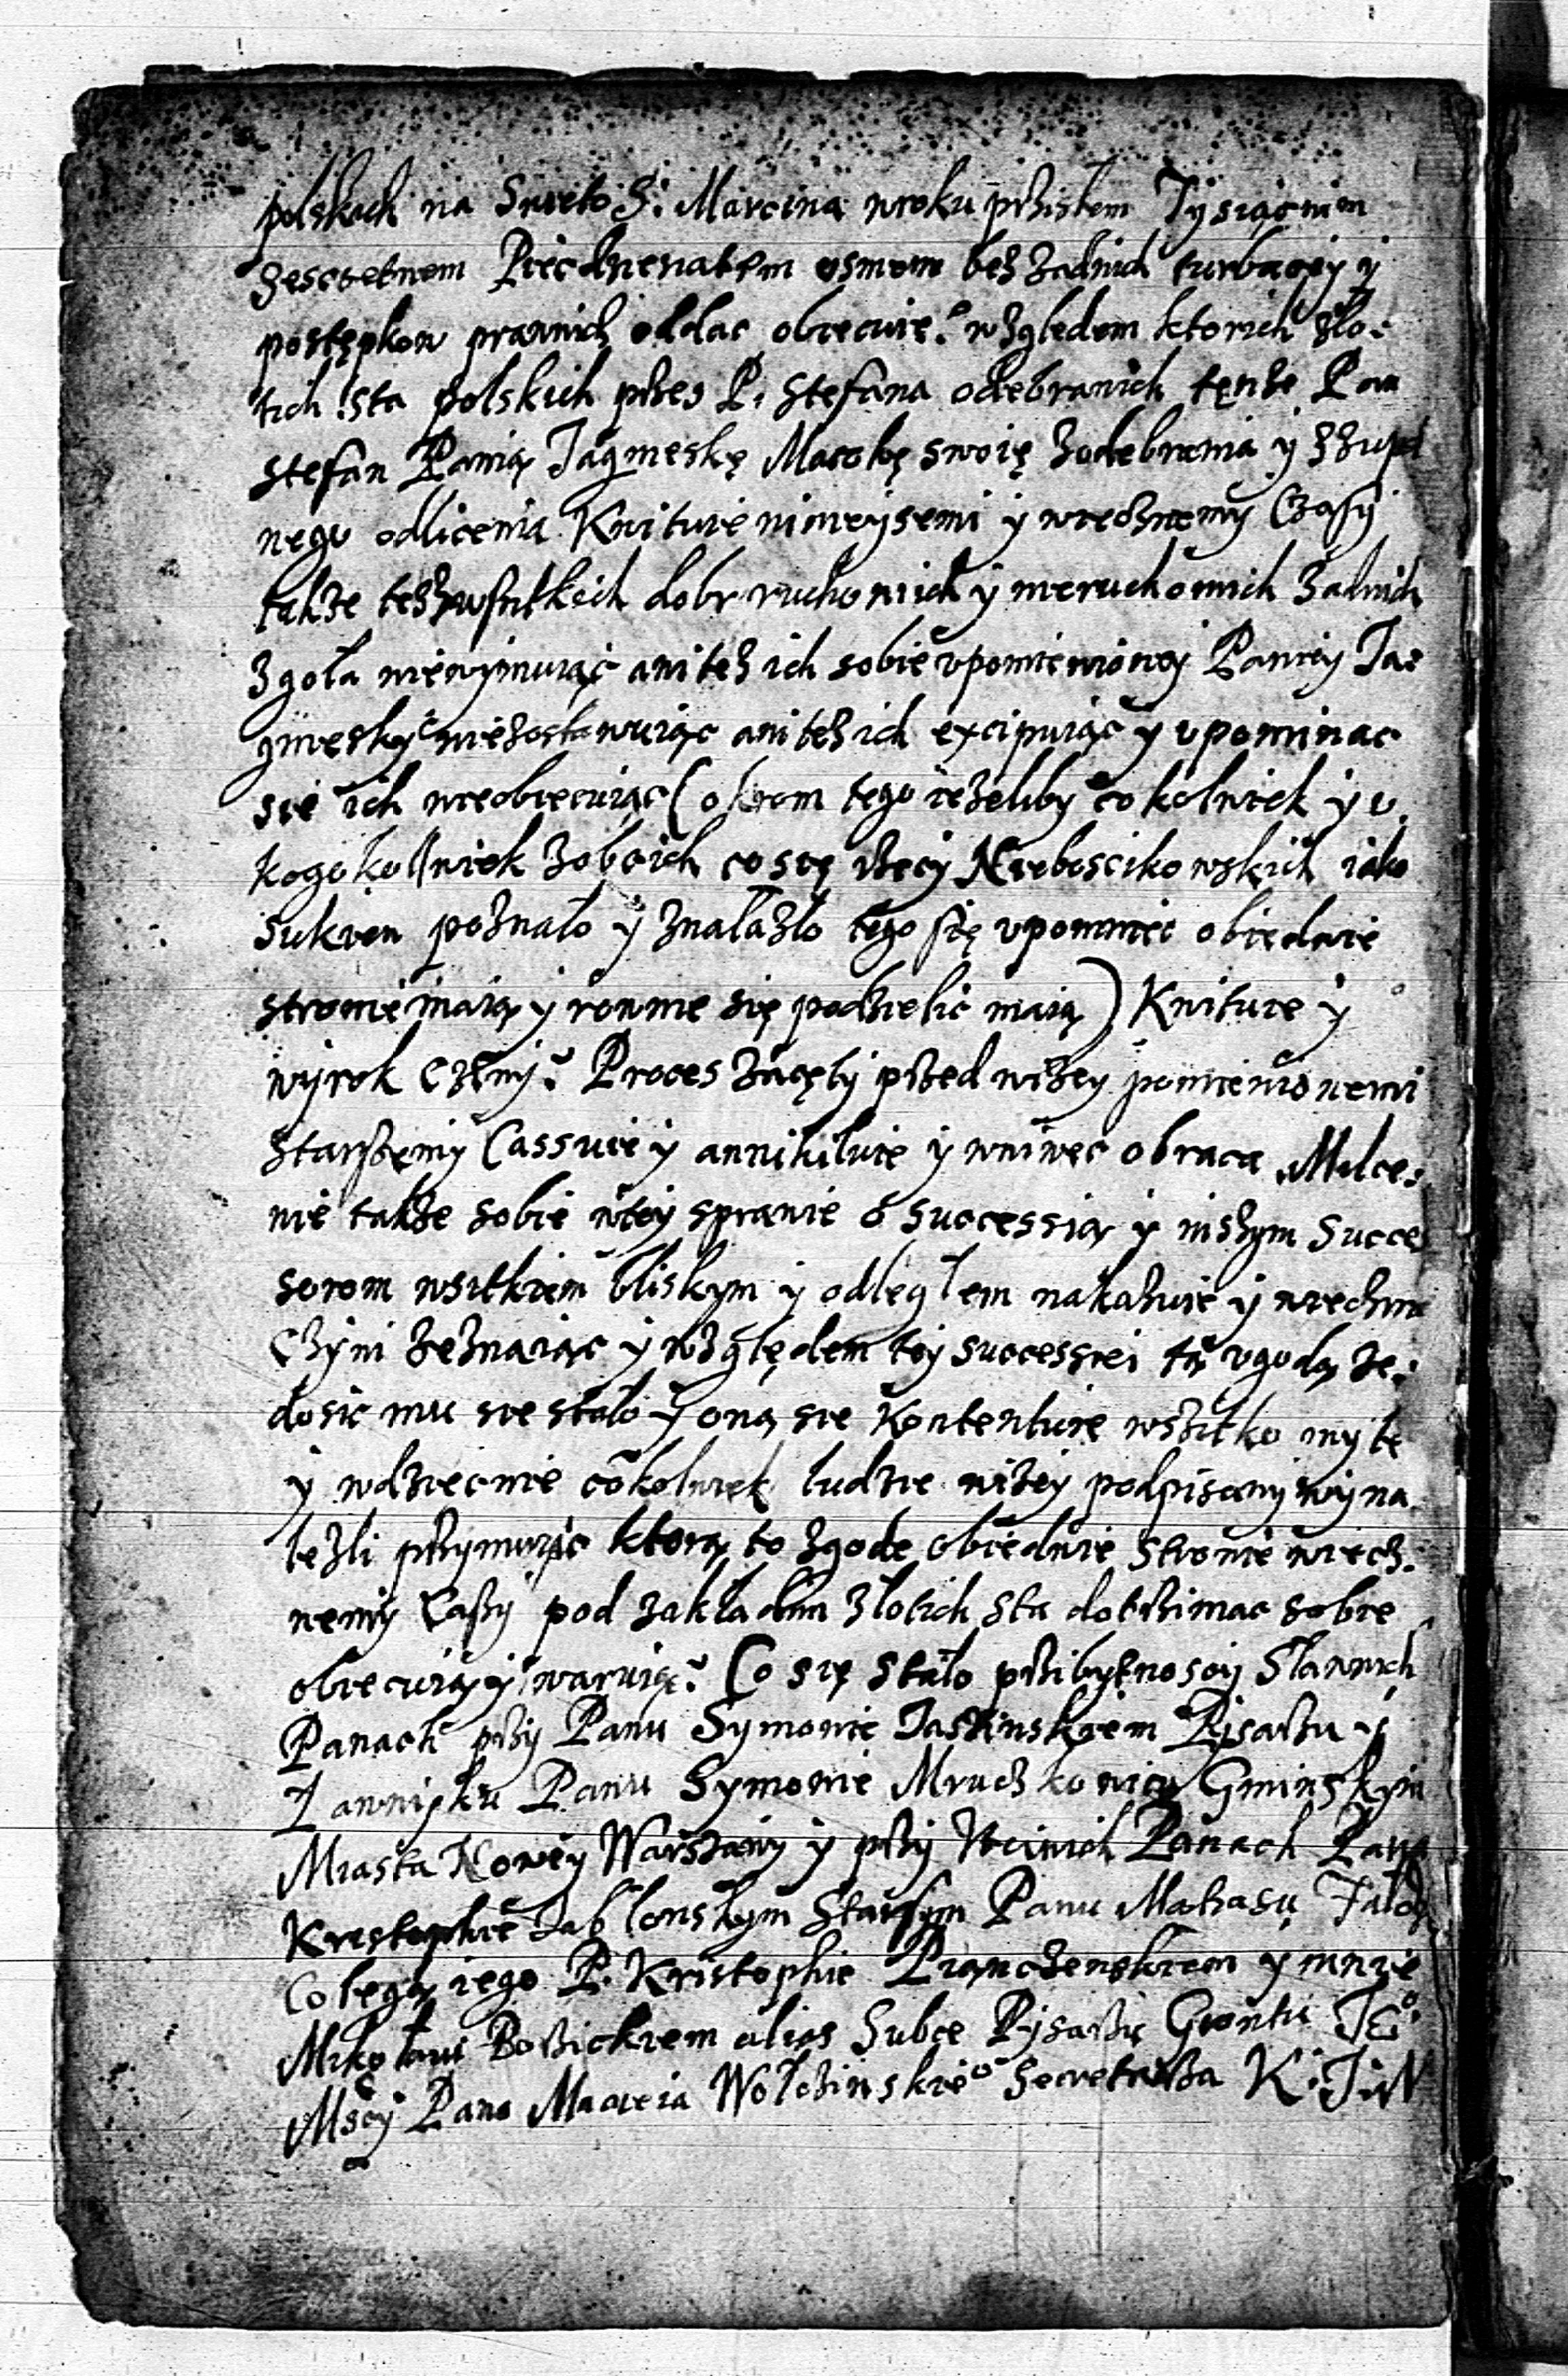 polskach na Swieto S: Marcina wroku przislem Tysiącnem
Sescsetnem Piecdziesiatem osmem bes zadnich turbaciy y
postępkow prawnich oddac obiecuie: wzgledem ktorich zło-
tich sta polskich przes P. Stefana odebranich tęnze Pan
Stefan Panią Jagmeskę Macohę swoię zodebrania y zzupeł
nego odlicenia Kwituie nineysemi y wiecznemy Czasy
takze tesz wsitkich dobr ruchomich y nieruchomich zadnich
zgoła niewyimuiąc ani tesz ich sobie upomienioney Paniey Jag
gmesky niezostawuiąc ani tesz ich excipuiąc y upominac
sie ich nieobiecuiąc (okrom tego iezeliby co kolwiek y u
kogokolwiek zobcich co się rzecy Nieboscikowskich iako
sukien poznało y znalazło tego się upomniec obiedwie
stronie maią y rownie się podzielic maią) Kwituie y
wyrok Czyni: Proces zacęty przed wizey pomienionemi
Starszemy Cassuie y annihiluie y wniwec obraca Milce-
nie takze sobie wtey sprawie o successią y inszym Succes
sorom wsitkiem bliskym y odległem nakazuie y wieczne
Czyni zeznaiąc y wzglęndem tey successiei tą ugodą ze-
dosic mu sie stało y oną sie Kontentuie wszitko myte
y wdziecnie cokolwiek ludzie nizey podpisany wyna
lezli przymuiąc ktorą to zgode obiedwie stronie wiecz-
nemy Casy pod zakładem złotich sta dotrzimac sobie
obiecuią y waruią: Co się stało przi bytnoscy Sławnich
Panach przy Panu Symonie Jaszinskiem Pisarzu y
Ławniku Panu Symonie Mruczkowicu Gminskym
Miasta Nowey Warszawy y przy Ucciwich Panach Panu
Kristophie Jabłonskym Starszym Panu Matiasu
Collegą iego P. Kristophie y mnie
Mikołaiu alias Subce Pysarzu Gronthi Jeo
Mscy Pana Macieia Wołczinskieo Secretarza K: J: M